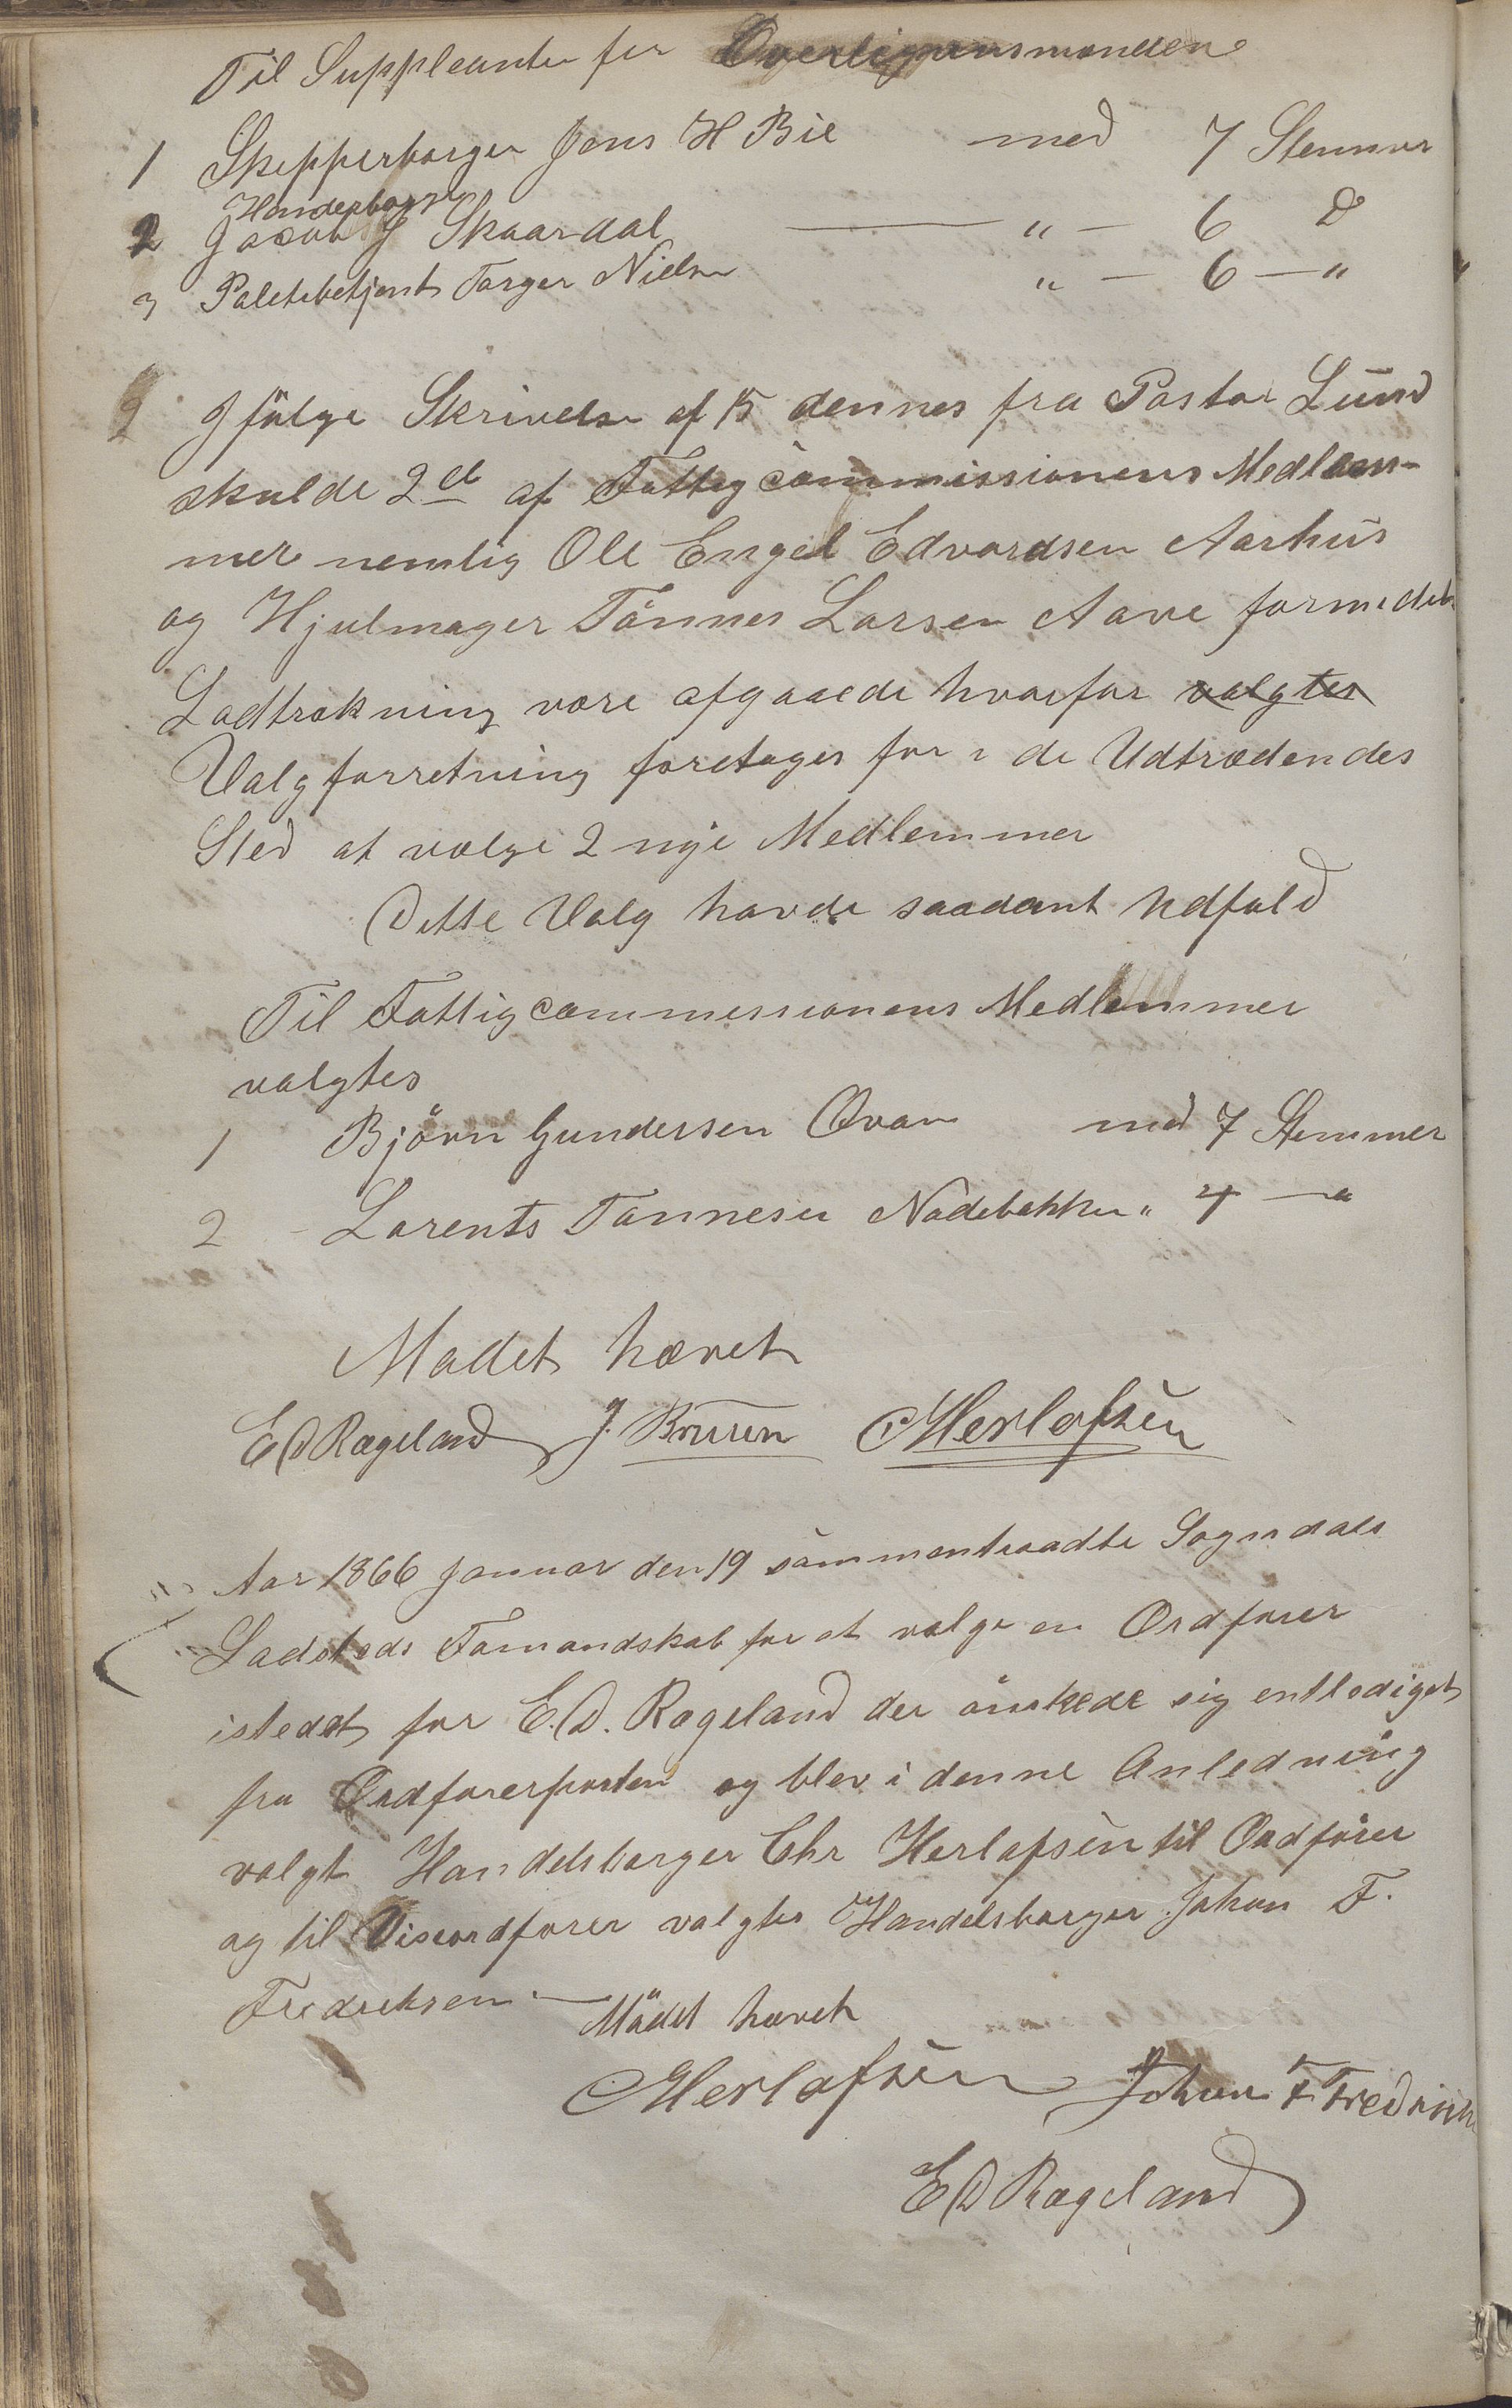 Til Suppleanter for Overligningsmændene
1 Skipperborger Jens H Bie med 7 Stemmer
Handelsborger
2 Jacob J Skaardal " — 6 Do
3 Politibetjent Torger Nielsen " — 6 — "
9 Ifølge Skrivelse af 15 dennes fra Pastor Lund
skulde 2de af Fattigcommissionens Medlem-
mer nemlig Ole Engel Edvardsen Aarhus
og Hjulmager Tönnes Larsen Aave formedelst
Lodtrækning være afgaaede hvorfor valgtes
Valgforretning foretages for i de Udtrædendes
Sted at vælge 2 nye Medlemmer
Dette Valg havde saadant Udfald
Til Fattigcommissionens Medlemmer
valgtes
1 Björn Gundersen Øvan med 7 Stemmer
2 Lorents Tønnesen Nødebækken " 4 — "
Mødet hævet
E D Rægeland J. Bruun CHerlofsen
Aar 1866 Januar den 19 sammentraadte Sogndals
Ladsteds Formandskab for at vælge en Ordfører
istedet for E. D. Rægeland der önskede sig entlediget
fra Ordførerposten og blev i denne Anledning
valgt Handelsborger Chr Herlofsen til Ordfører
og til Viseordfører valgtes Handelsborger Johan F.
Fredriksen — Mödet hævet
CHerlofsen Johan F Fredriksen
E D Rægeland